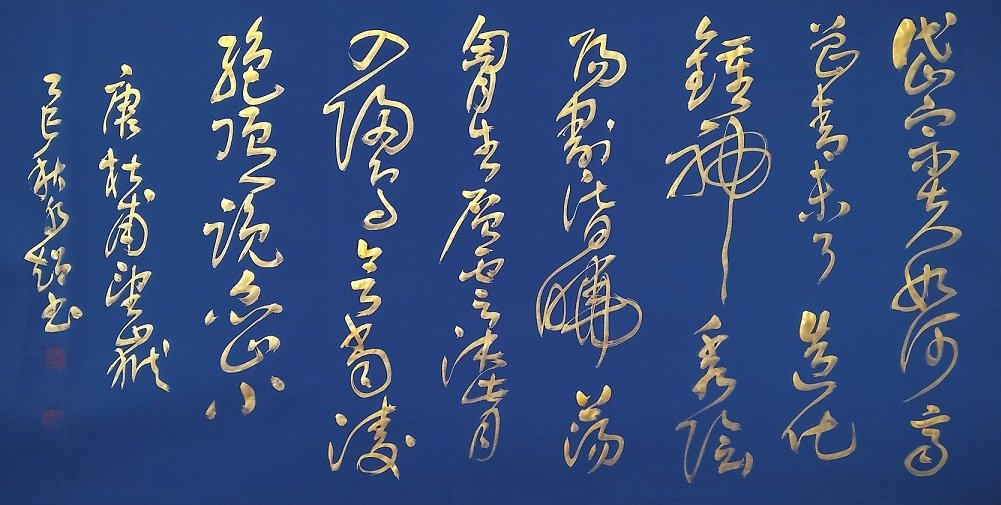 岱宗夫如何齊
魯青未了造化
鍾神秀陰
陽割昏曉蕩
胸生層雲決眥
入歸鳥會當凌
絕頂一覽眾山小
唐杜甫望嶽
乙巳秋永超书